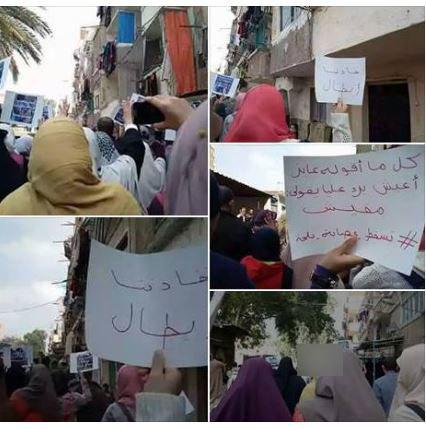 قادتنا
أبطال
كل ما أقوله عايز
أعيش يرد عليا يقولي
مفيش
#تسقط_عصابة_بلحة
قادتنا
أبطال